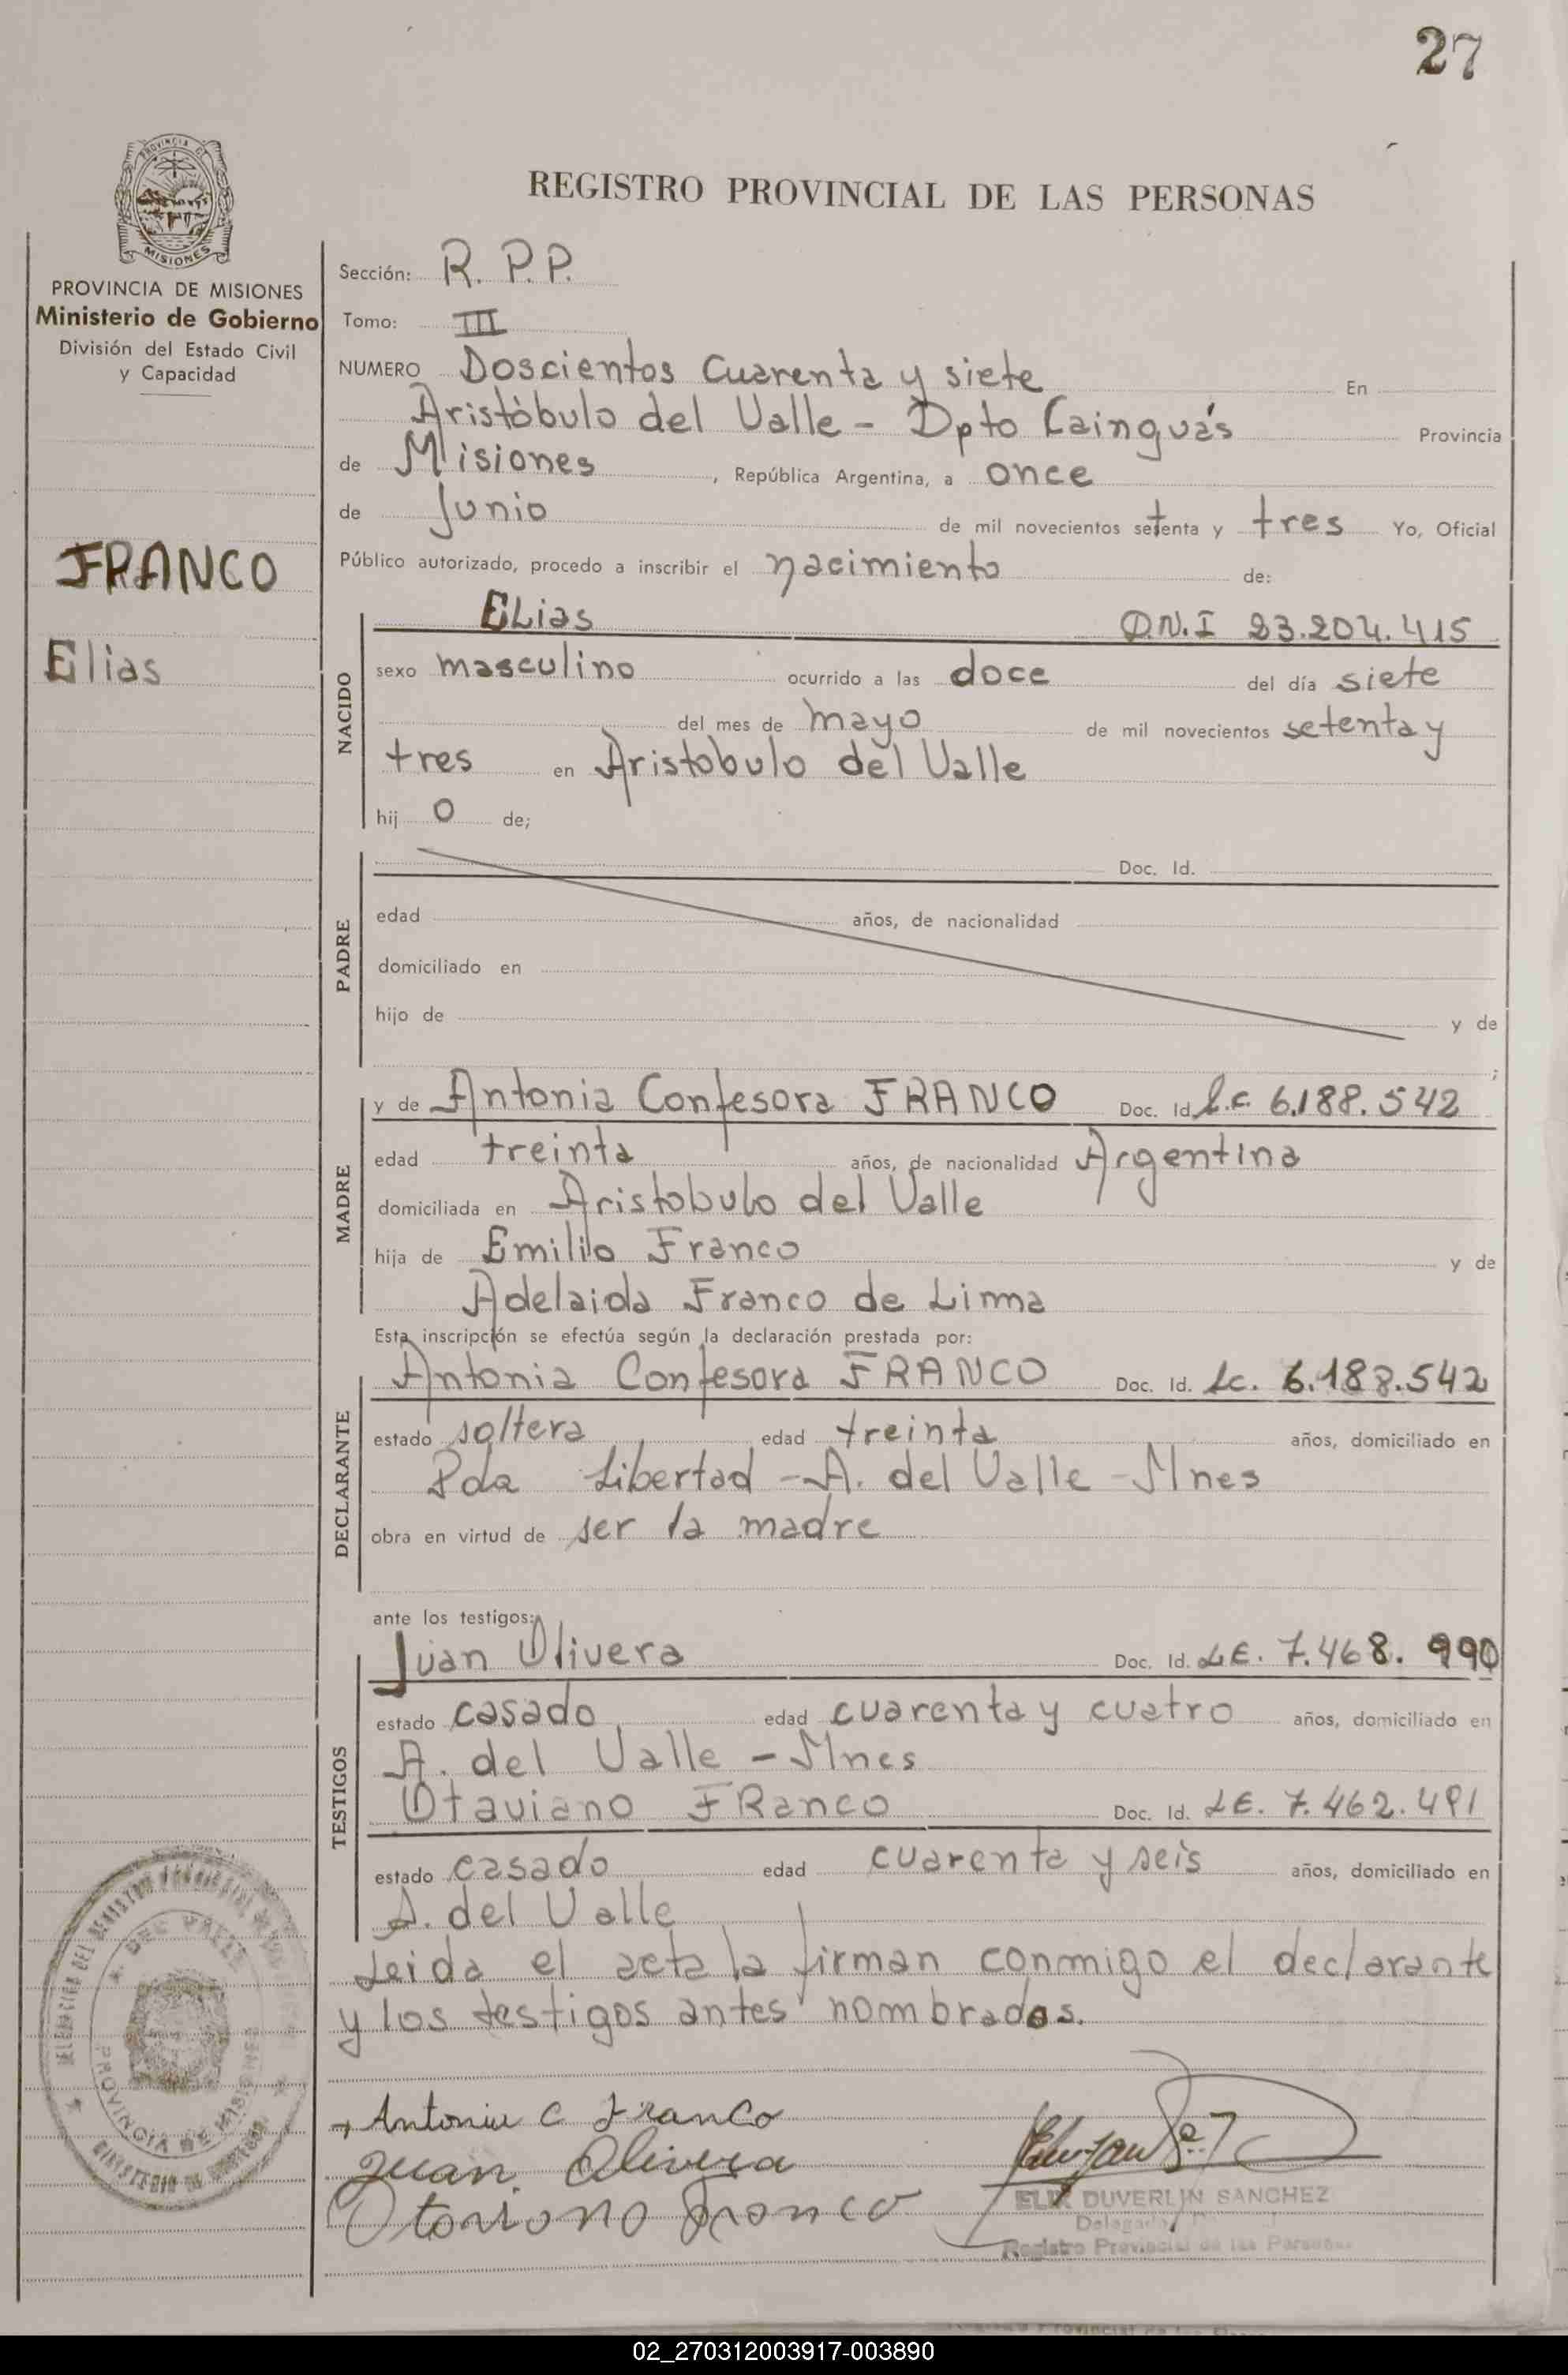 27
PROVINCIA DE
MISIONES
REGISTRO PROVINCIAL DE LAS PERSONAS
PROVINCIA DE MISIONES
Ministerio de Gobierno
División del Estado Civil
y Capacidad
FRANCO
Elias
Sección: R. P. P.
Tomo: III
NUMERO Doscientos Cuarenta y siete En
Aristóbulo del Valle - Dpto Cainguás Provincia
de Misiones, República Argentina, a once
de Junio de mil novecientos setenta y tres Yo, Oficial
Público autorizado, procedo a inscribir el nacimiento de:
NACIDO
ELias D.N.I 23.204.415
sexo masculino ocurrido a las doce del día siete
del mes de mayo de mil novecientos setenta y
tres en Aristobulo del Valle
hij o de;
PADRE
Doc. Id.
edad años, de nacionalidad
domiciliado en
hijo de y de
;
MADRE
y de Antonia Confesora FRANCO Doc. Id. L.c. 6.188.542
edad treinta años, de nacionalidad Argentina
domiciliada en Aristobulo del Valle
hija de Emilio Franco y de
Adelaida Franco de Limma
Esta inscripción se efectúa según la declaración prestada por:
DECLARANTE
Antonia Confesora FRANCO Doc. Id. Lc. 6.188.542
estado soltera edad treinta años, domiciliado en
Pda Libertad - A. del Valle - Mnes
obra en virtud de ser la madre
ante los testigos:
TESTIGOS
Juan Olivera Doc. Id. LE. 7.468.990
estado casado edad cuarenta y cuatro años, domiciliado en
A. del Valle - Mnes
Otaviano FRanco Doc. Id. LE. 7.462.491
estado casado edad cuarenta y seis años, domiciliado en
A. del Valle
Leida el acta la firman conmigo el declarante
y los testigos antes nombrados.
A. DEL VALLE
PROVINCIA DE MISIONES
Antonia C Franco
Juan Olivera
Otaviano Franco
ELIX DUVERLIN SANCHEZ
Delegado
Registro Provincial de las Personas
02_270312003917-003890